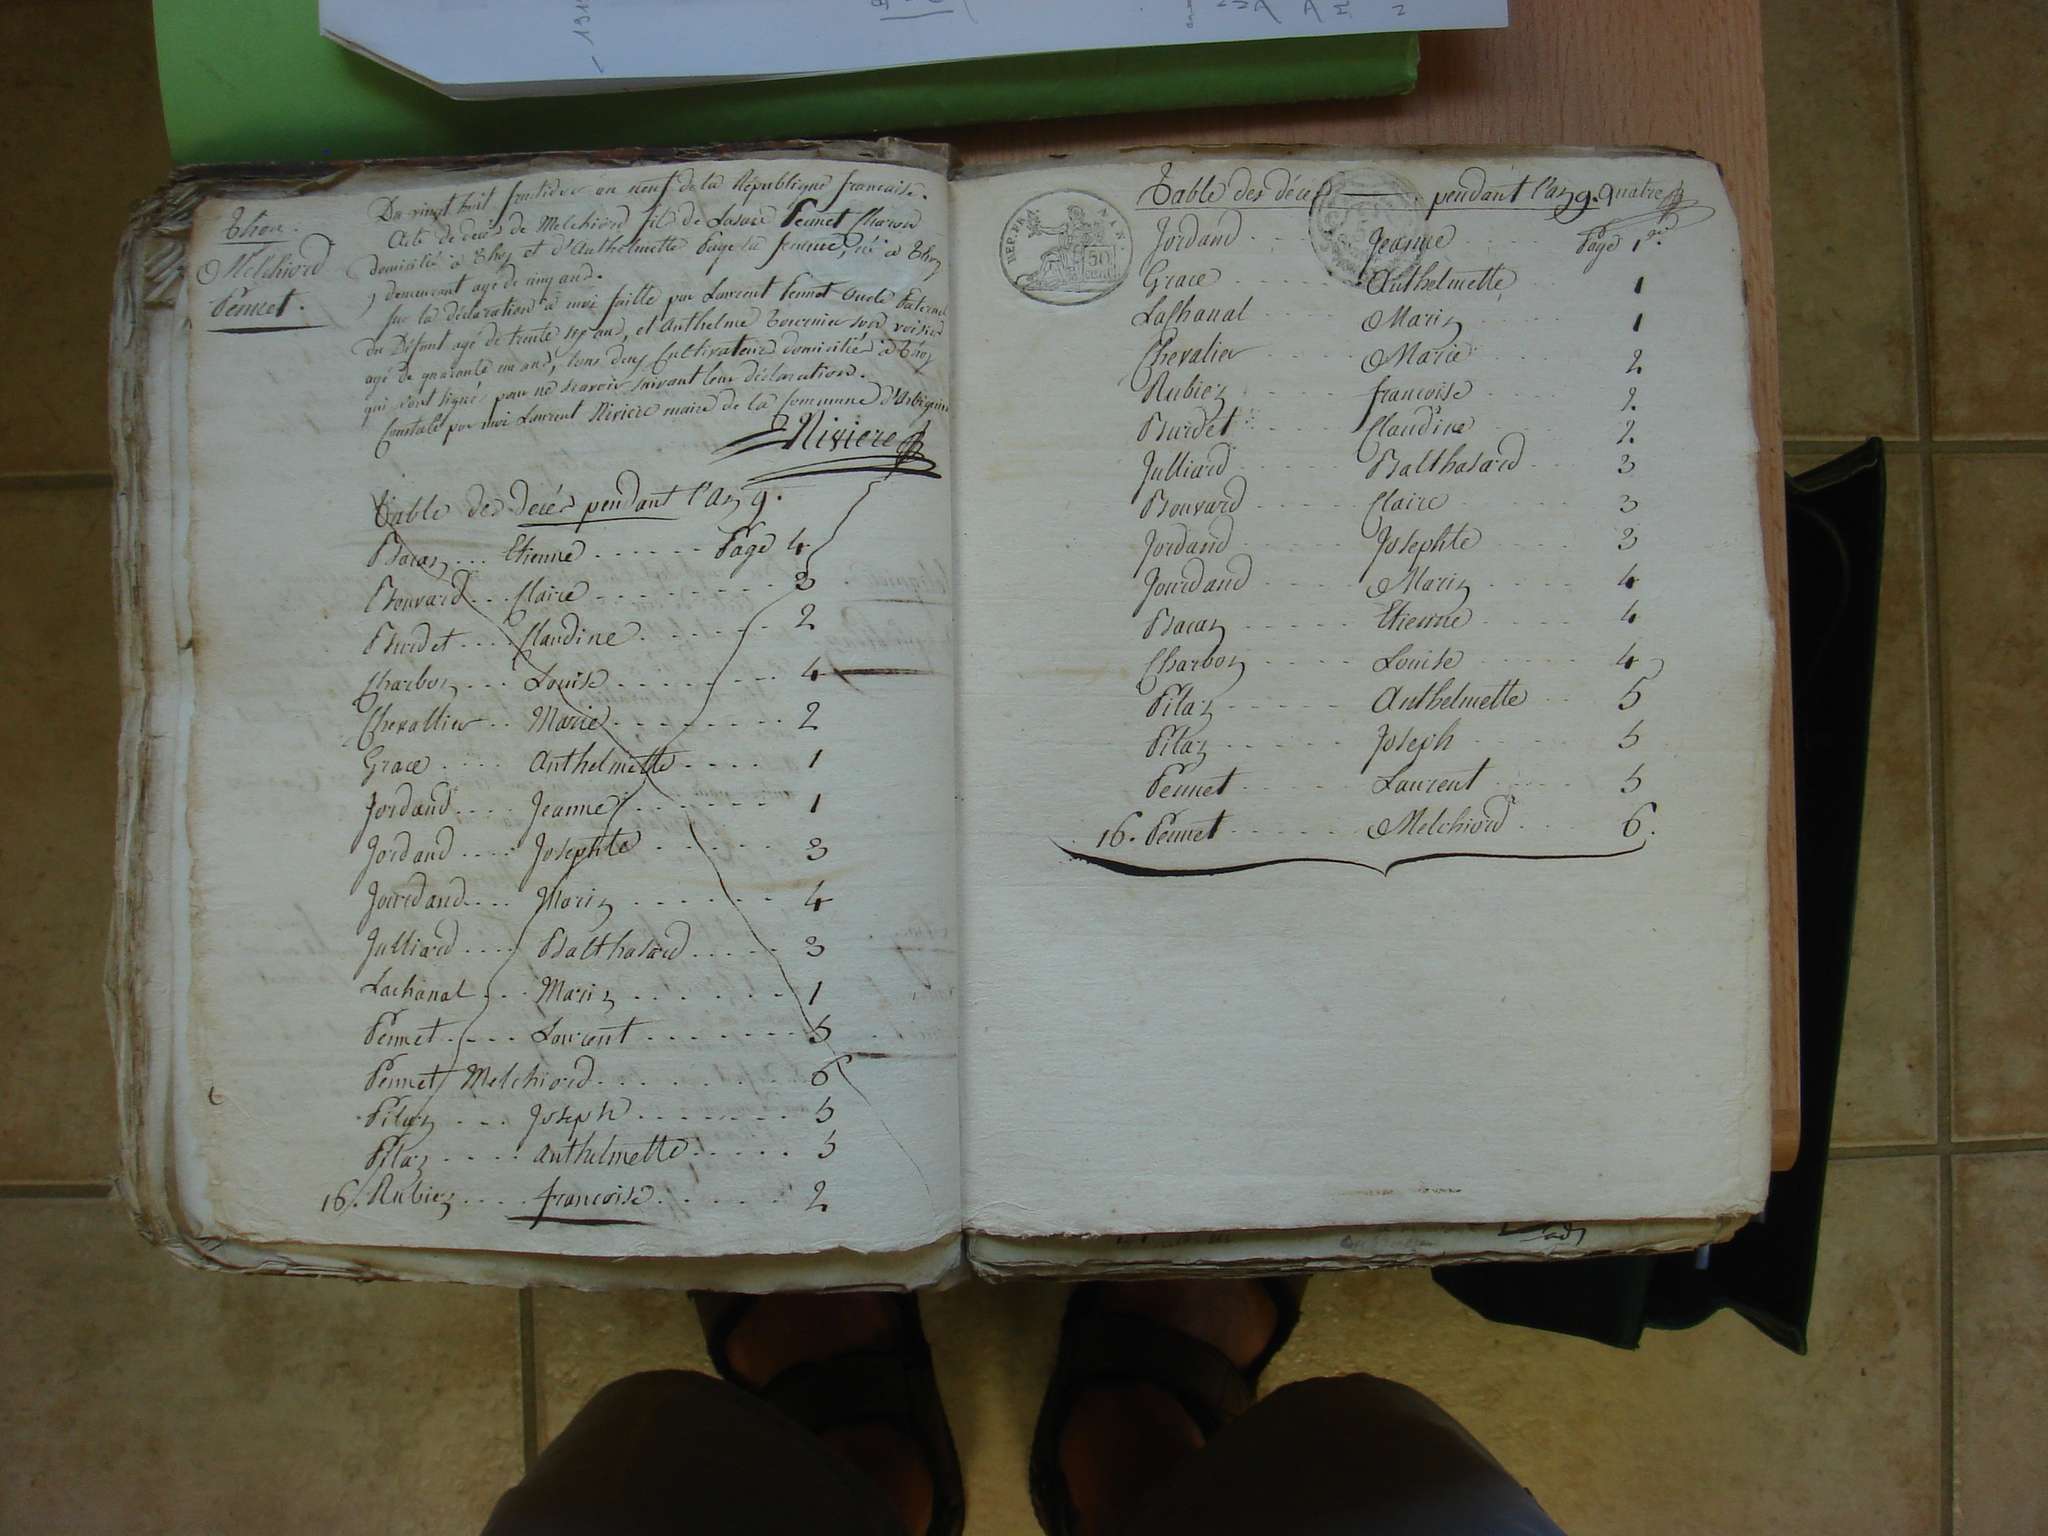 Thoy.
Melchiord
Pennet.
Du vingt huit fructidor an neuf de la République francaise.
Acte de decès de Melchiord fils de Lasare Pennet Charon
domicilié à Thoy et d'Anthelmette Page sa femme, né à Thoy
y demeurant agé de cinq ans.
sur la déclaration à moi faitte par Laurent Pennet oncle Paternel
du Défunt agé de trente sept ans, et Anthelme Tournier son voisin
agé de quarante un ans, tous deux Cultivateurs domiciliés à Thoy
qui n'ont signés pour ne scavoir suivant leur déclaration.
Constaté par moi Laurent Riviere maire de la Commune d'Arbignieu
Riviere
Table des decés pendant l'an 9.
Bacon ... Etienne ...... Page 4
Bouvard ... Claire ....... 3
Burdet .... Claudine ...... 2
Charbon ... Louise ........ 4
Chevallier .. Marie ........ 2
Grace ..... Anthelmette .... 1
Jordand .... Jeanne ....... 1
Jordand .... Josephte ...... 3
Jourdand ... Marin ....... 4
Julliard .... Balthasard ..... 3
Lachanal ... Marin ...... 1
Pennet .... Laurent ....... 5
Pennet Melchiord ........ 6
Pilaz ... Joseph ....... 5
Pilaz .... Anthelmette ..... 5
16. Rubiez .... francoise ..... 2
REP. FRA
50
CENT.
Table des décés pendant l'an 9. quatre
Jordand ... Jeanne .... Page 1
Grace ..... Anthelmette .... 1
Lachanal .... Marin .... 1
Chevalier .... Marie .... 2
Rubiez .... francoise .... 2
Burdet .... Claudine .... 2
Julliard .... Balthasard .... 3
Bouvard .... Claire .... 3
Jordand .... Josephte .... 3
Jourdand .... Marin .... 4
Bacon .... Etienne .... 4
Charbon .... Louise .... 4
Pilaz .... Anthelmette .. 5
Pilaz .... Joseph .... 5
Pennet .... Laurent .... 5
16. Pennet .... Melchiord ... 6.